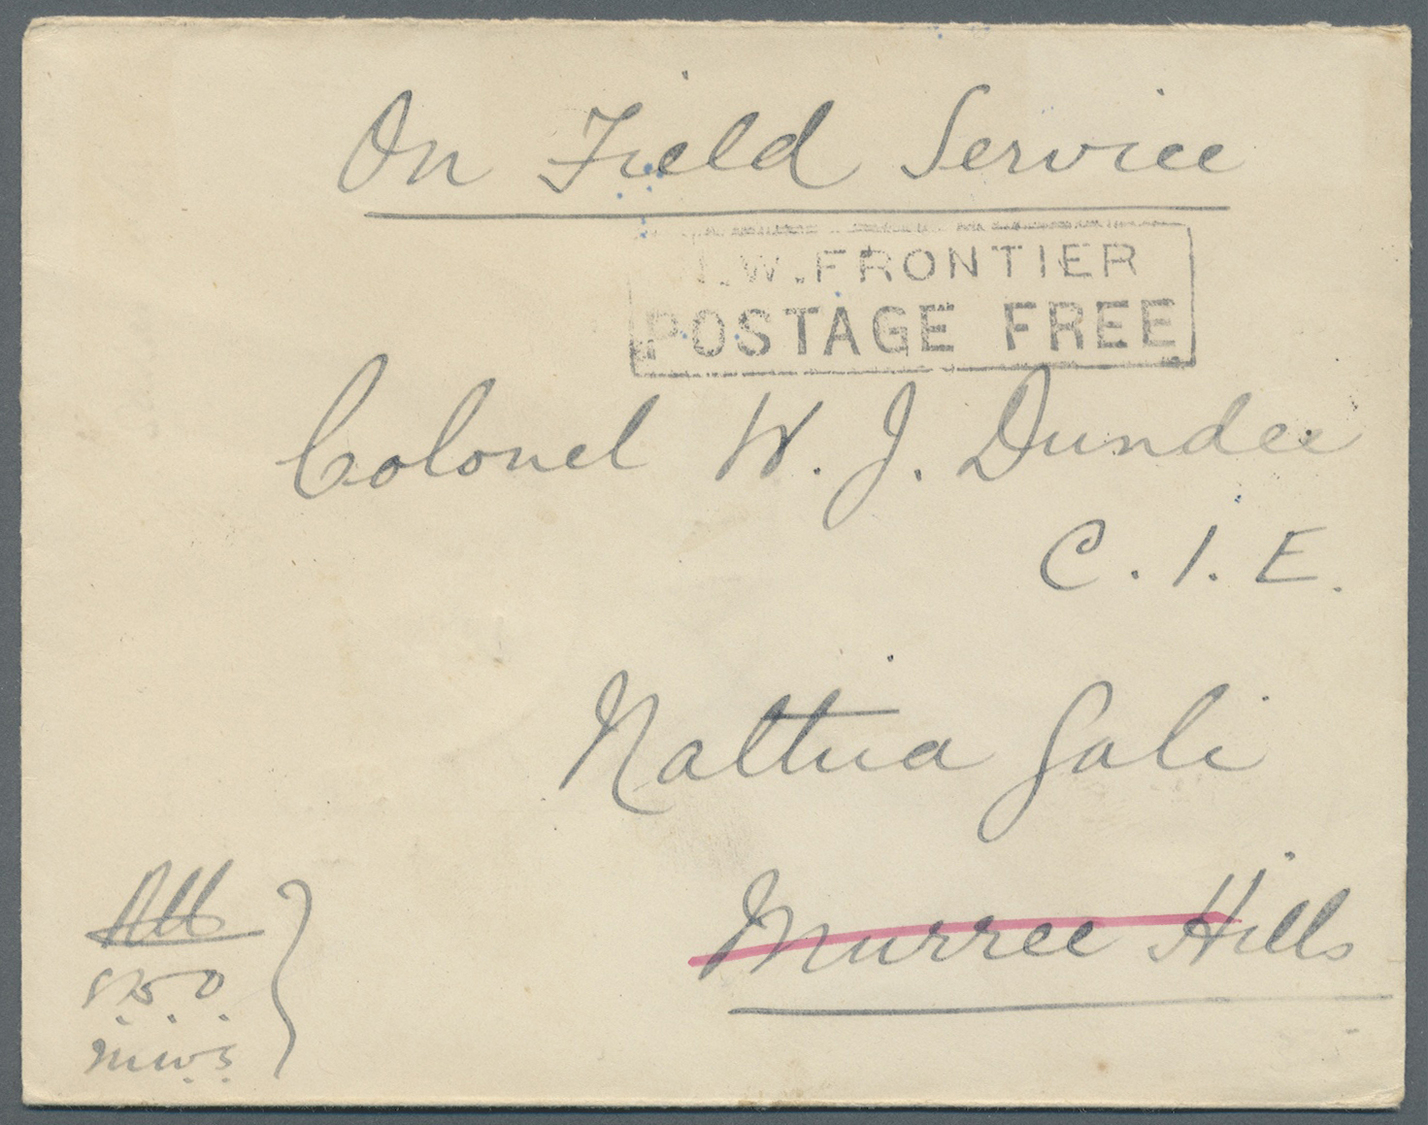 On Field Service
.W.FRONTIER
POSTAGE FREE
Colonel W. J. Dundee
C. I. E.
Nathia Gali
Murree Hills